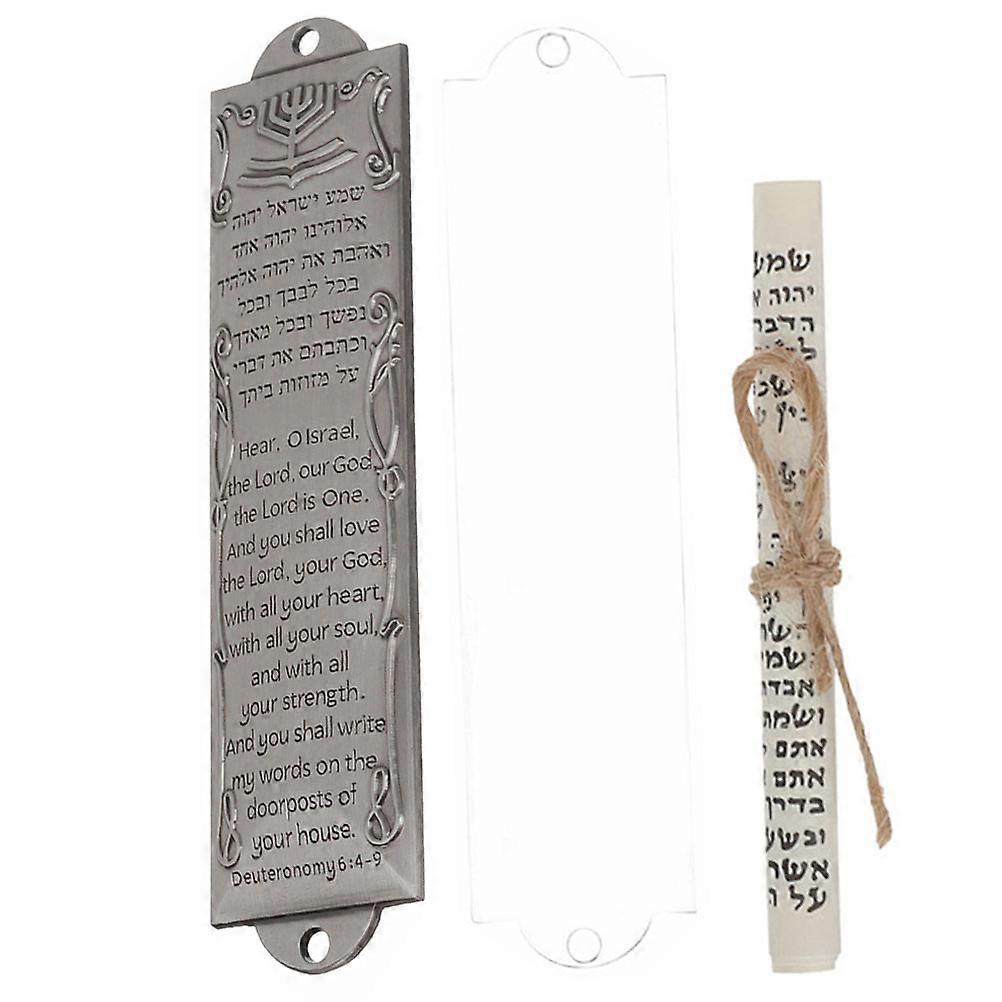 שמע ישראל יהוה
אלוהינו יהוה אחד
ואהבת את יהוה אלהיך
בכל לבבך ובכל
נפשך ובכל מאדך
וכתבתם את דברי
על מזוזות ביתך
Hear, O Israel,
the Lord, our God,
the Lord is One.
And you shall love
the Lord, your God,
with all your heart,
with all your soul,
and with all
your strength.
And you shall write
my words on the
doorposts of
your house.
Deuteronomy 6:4-9
שמע
יהוה
הדבר
אבדת
ושמת
אתם
אתם
אשר
על